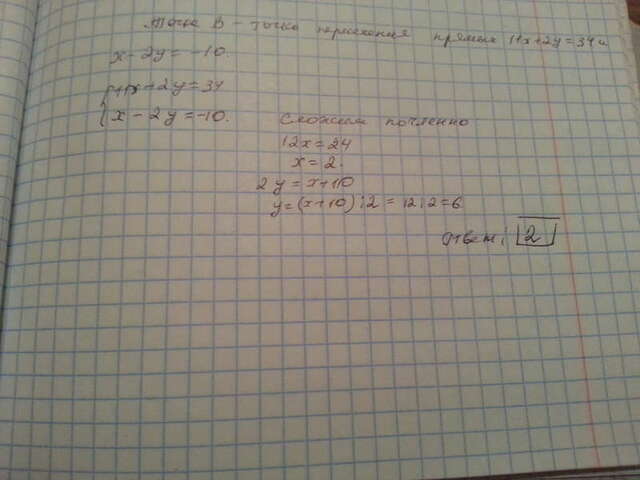 Точка B - точка пересечения прямых 11x+2y=34 и
x-2y=-10.
{11x+2y=34
x-2y=-10. Сложим почленно
12x=24
x=2.
2y=x+10
y=(x+10):2=12:2=6
Ответ: 2